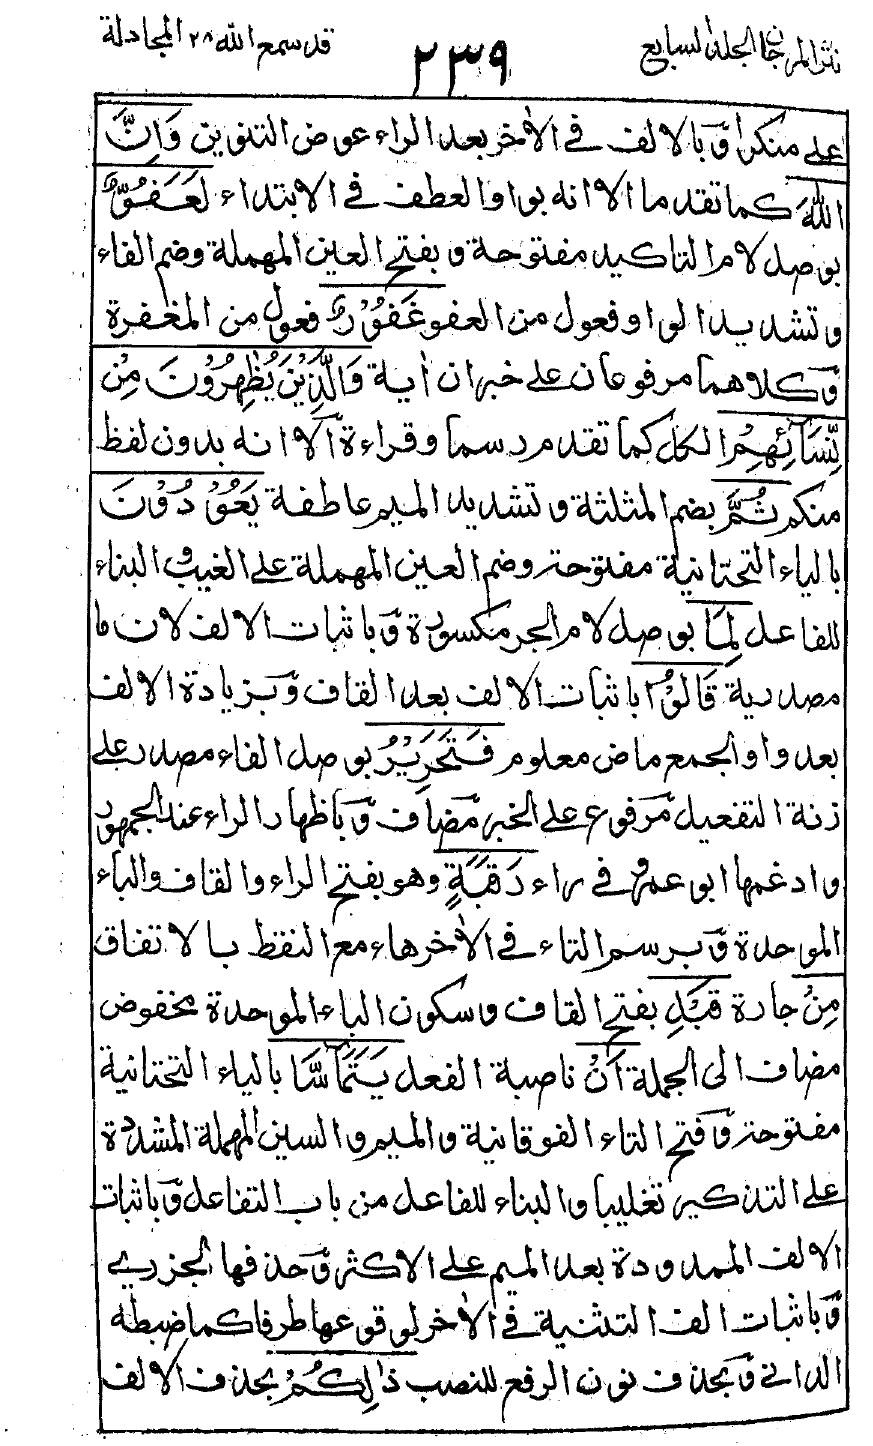 نثر المرجان الجلد السابع
٢٣٩
قد سمع الله ٢٨ المجادلة
على منكرا وبالالف في الاٰخر بعد الراء عوض التنوين وَاِنَّ
اللّٰهَ كما تقدم الا انه بواو العطف في الابتداء لَعَفُوٌّ
بوصل لام التاكيد مفتوحة وبفتح العين المهملة وضم الفاء
وتشديد الواو فعول من العفو غَفُوْرٌ فعول من المغفرة
وكلاهما مرفوعان على خبر ان اٰية وَالَّذِيْنَ يُظٰهِرُوْنَ مِنْ
نِّسَآئِهِمْ الكل كما تقدم رسما وقراءة الا انه بدون لفظ
منكم ثُمَّ بضم المثلثة وتشديد الميم عاطفة يَعُوْدُوْنَ
بالياء التحتانية مفتوحة وضم العين المهملة على الغيب والبناء
للفاعل لِمَا بوصل لام الجر مكسورة وباثبات الالف لان ما
مصدرية قَالُوْا باثبات الالف بعد القاف وبزيادة الالف
بعد واو الجمع ماض معلوم فَتَحْرِيْرُ بوصل الفاء مصدر على
زنة التفعيل مرفوع على الخبر مضاف وباظهار الراء عند الجمهور
وادغمها ابو عمرو في راء رَقَبَةٍ وهو بفتح الراء والقاف والباء
الموحدة وبرسم التاء في الاٰخر هاء مع النقط بالاتفاق
مِنْ جارة قَبْلِ بفتح القاف وسكون الباء الموحدة مخفوض
مضاف الى الجملة اَنْ ناصبة الفعل يَتَمَآسَّا بالياء التحتانية
مفتوحة وفتح التاء الفوقانية والميم والسين المهملة المشددة
على التذكير تغليبا والبناء للفاعل من باب التفاعل وباثبات
الالف الممدودة بعد الميم على الاكثر وحذفها الجزري
وباثبات الف التثنية في الاٰخر لوقوعها طرفا كما ضبطه
الداني وبحذف نون الرفع للنصب ذٰلِكُمْ بحذف الالف